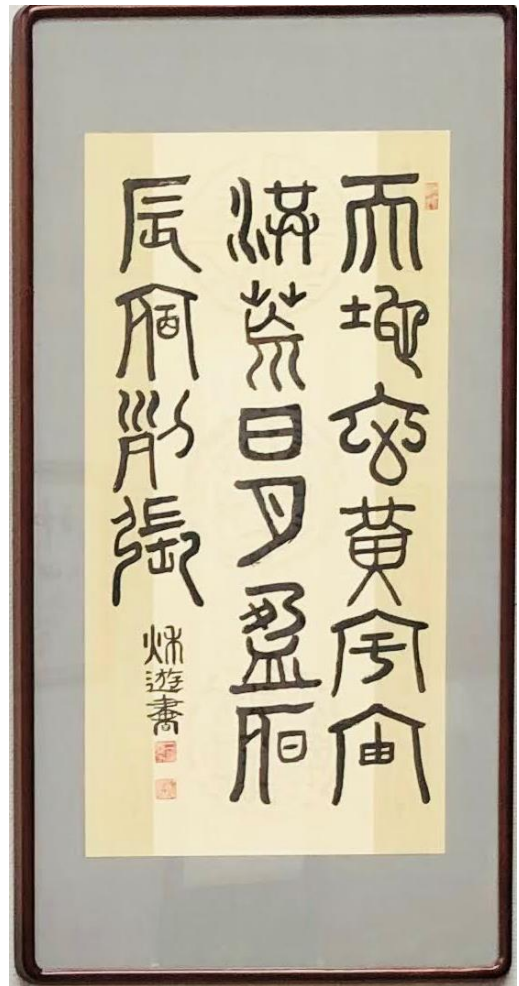 天地玄黃宇宙
洪荒日月盈昃
辰宿列張
秌遊書